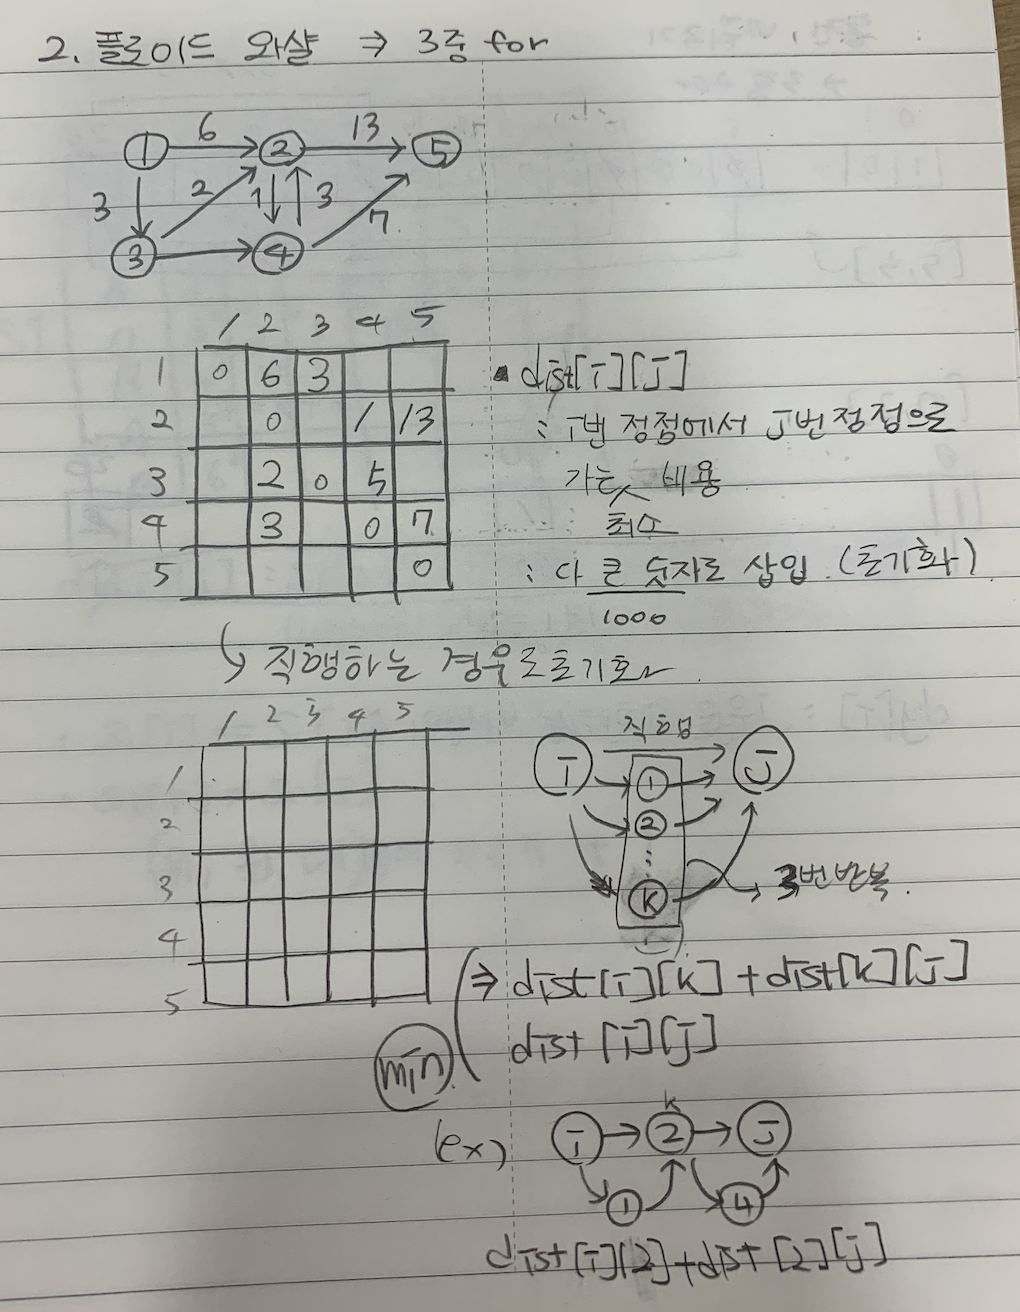 2. 플로이드 와샬 ⇒ 3중 for
① 6 ② 13 ⑤
3 2 1 3 7
③ ④
1 2 3 4 5
1 0 6 3
2 0 1 13
3 2 0 5
4 3 0 7
5 0
• dist[i][j]
: i번 정점에서 j번 정점으로
가는 비용
최소
: 다 큰 숫자로 삽입. (초기화)
1000
↳ 직행하는 경우로 초기화
1 2 3 4 5
1
2
3
4
5
직행
i ① j
②
⋮
ⓚ → 3번 반복.
min ⇒ dist[i][k] + dist[k][j]
dist[i][j]
k
(ex) i → ② → j
① ④
dist[i][2]+dist[2][j]